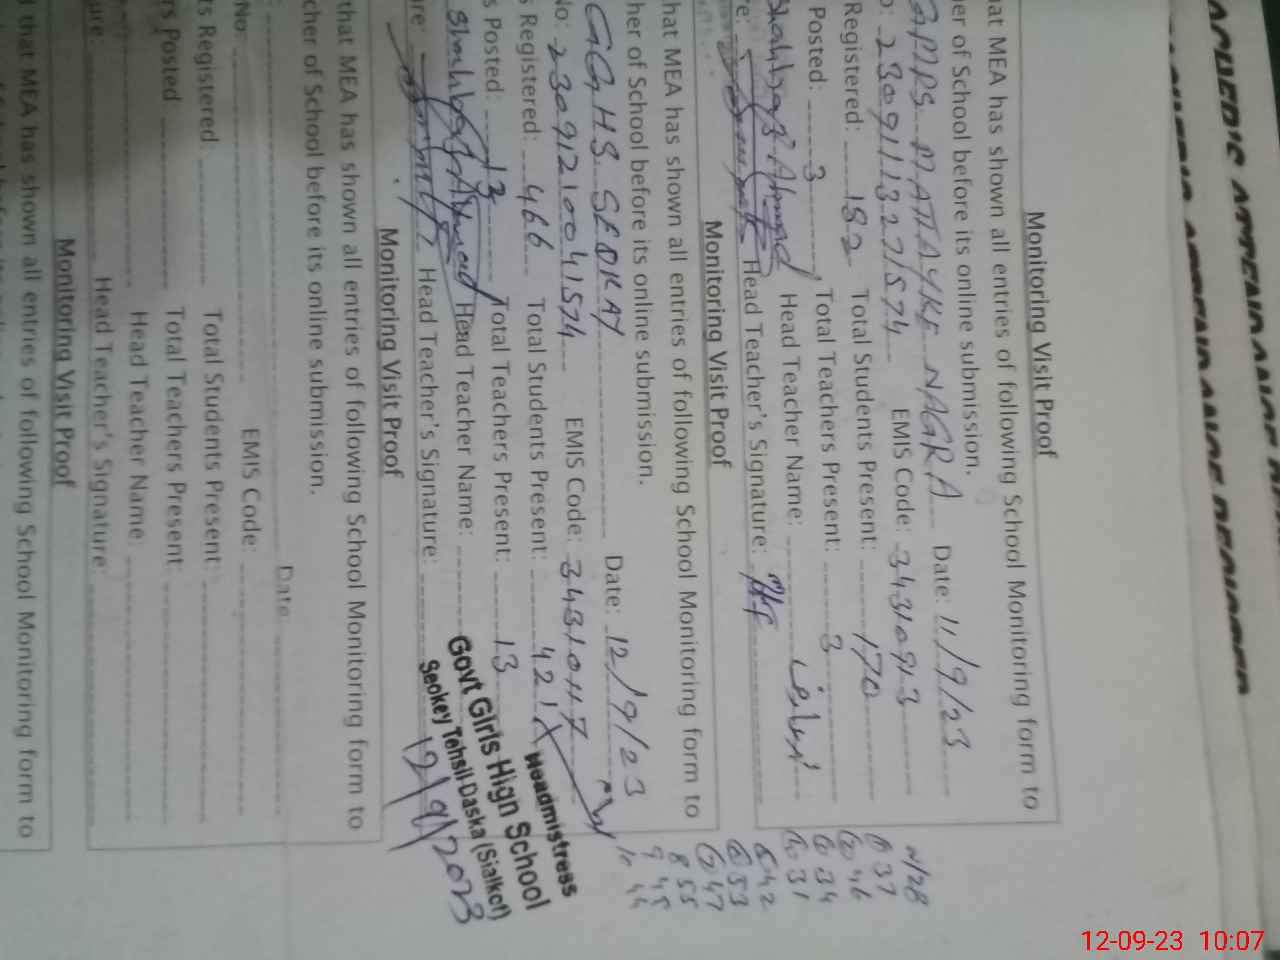 Monitoring Visit Proof
at MEA has shown all entries of following School Monitoring form to
er of School before its online submission.
NAGRA Date: 11/9/23
EMIS Code: 34310913
Registered: 182 Total Students Present: 170
Posted: 3 Total Teachers Present: 3
Shahbaz Ahmad Head Teacher Name:
re: Head Teacher's Signature:
Monitoring Visit Proof
hat MEA has shown all entries of following School Monitoring form to
her of School before its online submission.
GGHS SEOKAY Date: 12/9/23
No: 23091210041574 EMIS Code: 34310117
s Registered: 466 Total Students Present: 421
s Posted: 13 Total Teachers Present: 13
Shahbaz Ahmad Head Teacher Name:
ure: Head Teacher's Signature:
Headmistress
Govt Girls High School
Seokey Tehsil Daska (Sialkot)
12/9/2023
N/28
37
46
34
31
42
53
47
8 55
9 45
10 44
Monitoring Visit Proof
that MEA has shown all entries of following School Monitoring form to
cher of School before its online submission.
Date
No: EMIS Code:
ts Registered Total Students Present:
rs Posted Total Teachers Present
Head Teacher Name:
ure: Head Teacher's Signature:
Monitoring Visit Proof
that MEA has shown all entries of following School Monitoring form to
12-09-23 10:07